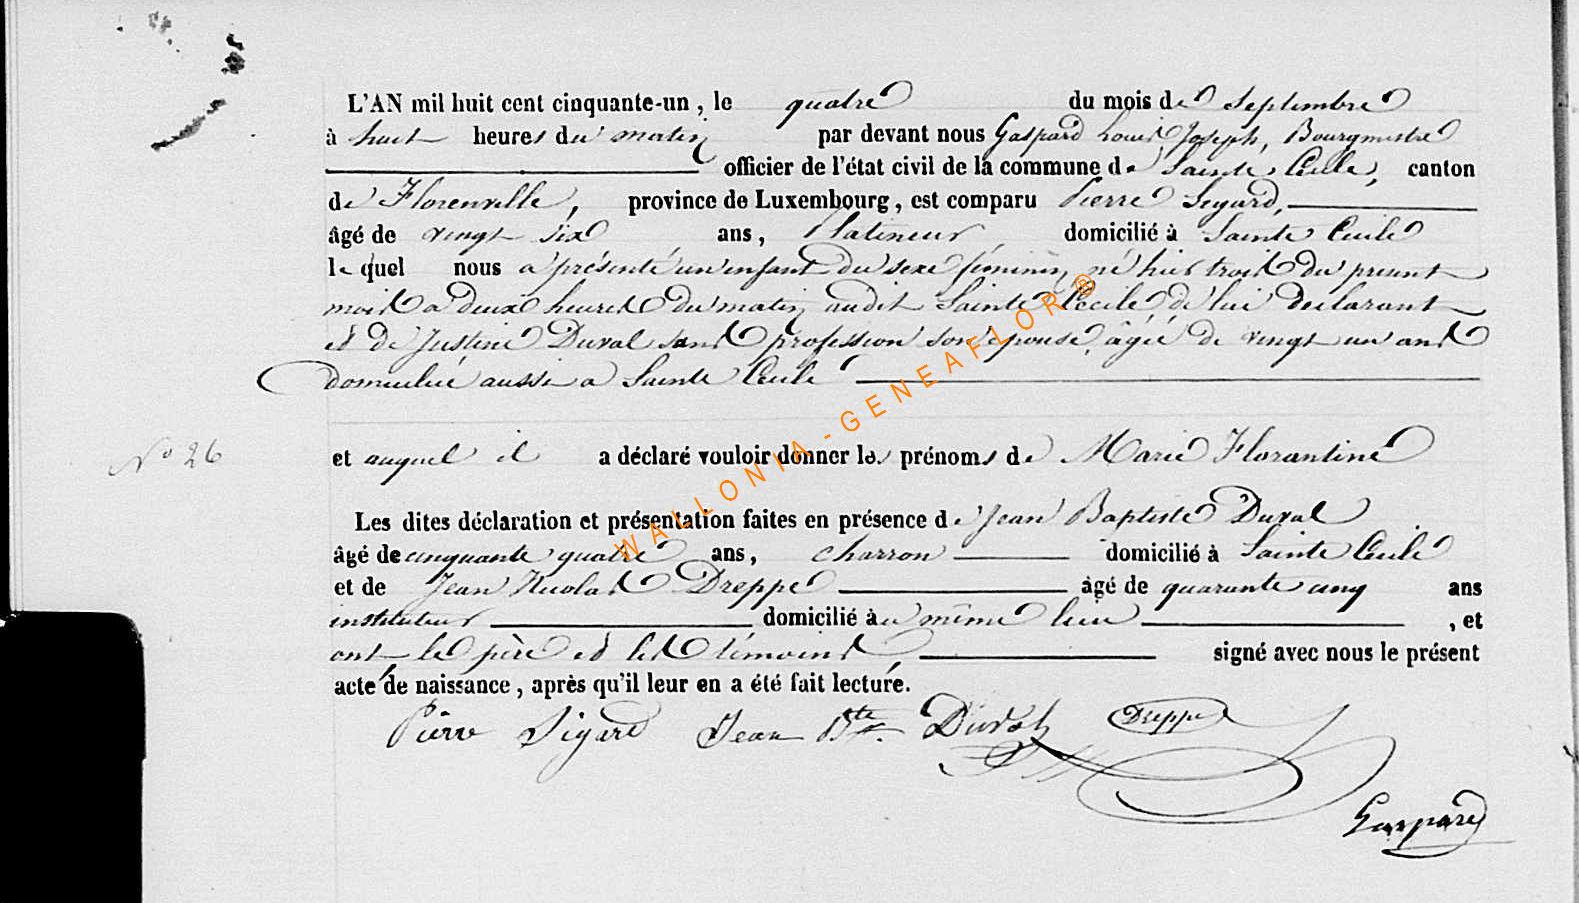 L'AN mil huit cent cinquante-un, le quatre du mois de Septembre
à huit heures du matin par devant nous Gaspard Louis Joseph, Bourgmestre
officier de l'état civil de la commune de Sainte Cecile, canton
de Florenville, province de Luxembourg, est comparu Pierre Sigard,
âgé de vingt six ans, Platineur, domicilié à Sainte Cecile
lequel nous a présenté un enfant du sexe féminin, né hier trois du present
mois a deux heures du matin audit Sainte Cecile, de lui declarant
et de Justine Duval sans profession son epouse, âgée de vingt un ans
domiciliée aussi a Sainte Cecile
No 26
et auquel il a déclaré vouloir donner les prénoms de Marie Florantine
Les dites déclaration et présentation faites en présence de Jean Baptiste Duval
âgé de cinquante quatre ans, charron domicilié à Sainte Cecile
et de Jean Nicolas Dreppe âgé de quarante cinq ans
instituteur domicilié au même lieu, et
ont le père et les témoins, signé avec nous le présent
acte de naissance, après qu'il leur en a été fait lecture.
Pierre Sigard Jean Bte. Duval Dreppe
Gaspard
WALLONIA-GENEAFLOR®